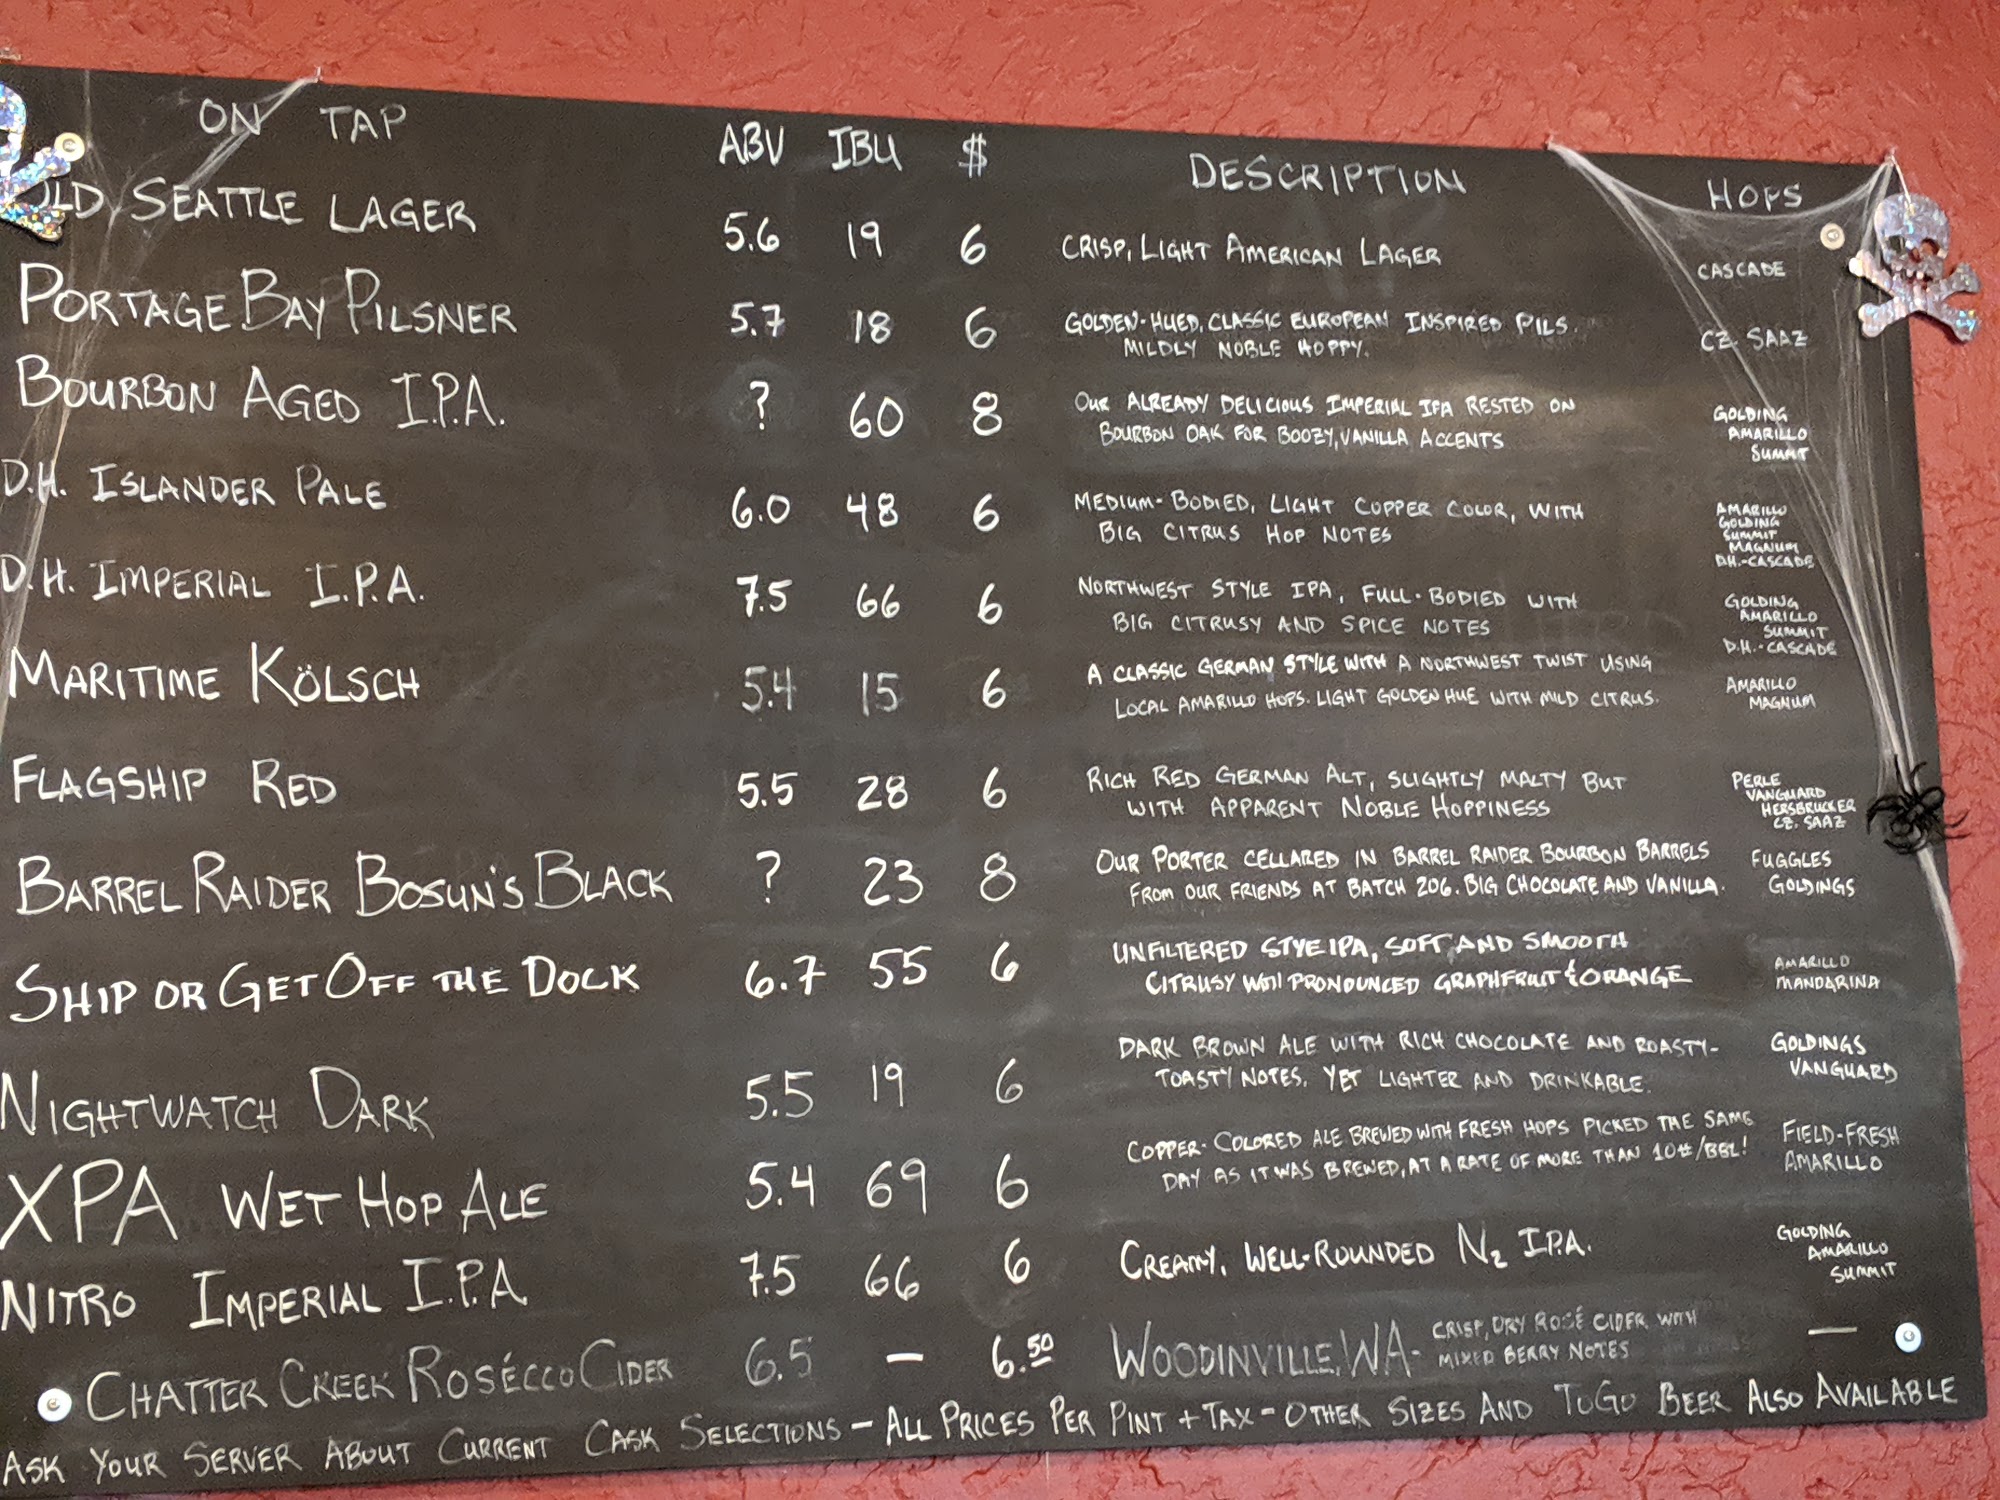 ON TAP ABV IBU $ DESCRIPTION HOPS
OLD SEATTLE LAGER 5.6 19 6 CRISP, LIGHT AMERICAN LAGER CASCADE
PORTAGE BAY PILSNER 5.7 18 6 GOLDEN-HUED, CLASSIC EUROPEAN INSPIRED PILS. CZ. SAAZ
MILDLY NOBLE HOPPY.
BOURBON AGED I.P.A. ? 60 8 OUR ALREADY DELICIOUS IMPERIAL IPA RESTED ON GOLDING
BOURBON OAK FOR BOOZY, VANILLA ACCENTS AMARILLO
SUMMIT
D.H. ISLANDER PALE 6.0 48 6 MEDIUM-BODIED, LIGHT COPPER COLOR, WITH AMARILLO
BIG CITRUS HOP NOTES GOLDING
SUMMIT
MAGNUM
D.H.-CASCADE
D.H. IMPERIAL I.P.A. 7.5 66 6 NORTHWEST STYLE IPA, FULL-BODIED WITH GOLDING
BIG CITRUSY AND SPICE NOTES AMARILLO
SUMMIT
D.H.-CASCADE
MARITIME KÖLSCH 5.4 15 6 A CLASSIC GERMAN STYLE WITH A NORTHWEST TWIST USING AMARILLO
LOCAL AMARILLO HOPS. LIGHT GOLDEN HUE WITH MILD CITRUS. MAGNUM
FLAGSHIP RED 5.5 28 6 RICH RED GERMAN ALT, SLIGHTLY MALTY BUT PERLE
WITH APPARENT NOBLE HOPPINESS VANGUARD
HERSBRUCKER
CZ. SAAZ
BARREL RAIDER BOSUN'S BLACK ? 23 8 OUR PORTER CELLARED IN BARREL RAIDER BOURBON BARRELS FUGGLES
FROM OUR FRIENDS AT BATCH 206. BIG CHOCOLATE AND VANILLA. GOLDINGS
SHIP OR GET OFF THE DOCK 6.7 55 6 UNFILTERED STYE IPA, SOFT AND SMOOTH AMARILLO
CITRUSY WITH PRONOUNCED GRAPHFRUIT & ORANGE MANDARINA
NIGHTWATCH DARK 5.5 19 6 DARK BROWN ALE WITH RICH CHOCOLATE AND ROASTY- GOLDINGS
TOASTY NOTES, YET LIGHTER AND DRINKABLE. VANGUARD
XPA WET HOP ALE 5.4 69 6 COPPER-COLORED ALE BREWED WITH FRESH HOPS PICKED THE SAME FIELD-FRESH
DAY AS IT WAS BREWED, AT A RATE OF MORE THAN 10#/BBL! AMARILLO
NITRO IMPERIAL I.P.A 7.5 66 6 CREAMY, WELL-ROUNDED N2 I.P.A. GOLDING
AMARILLO
SUMMIT
CHATTER CREEK ROSÉCCO CIDER 6.5 — 6.50 WOODINVILLE, WA- CRISP, DRY ROSÉ CIDER WITH —
MIXED BERRY NOTES
ASK YOUR SERVER ABOUT CURRENT CASK SELECTIONS — ALL PRICES PER PINT + TAX - OTHER SIZES AND TOGO BEER ALSO AVAILABLE